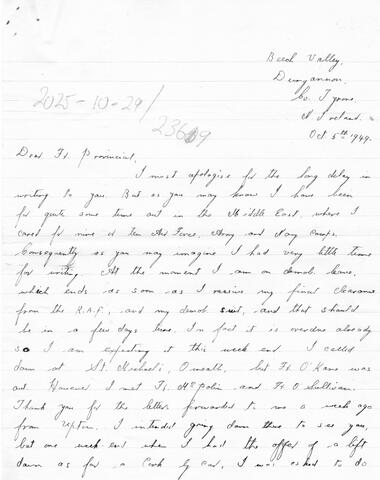 Beech Valley,
Dungannon,
Co. Tyrone.
N Ireland.
Oct 5th 1949.
2025-10-29/
23609
Dear Fr. Provincial,
I must apologise for the long delay in
writing to you. But as you may know I have been
for quite some time out in the Middle East, where I
cared for nine or ten Air Force, Army and Navy Camps.
Consequently as you may imagine I had very little time
for writing. At the moment I am on demob. leave,
which ends as soon as I receive my final clearance
from the R.A.F., and my demob suit, and that should
be in a few days time. In fact it is overdue already
so I am expecting it this week end. I called
down at St. Michael's, Omeath, but Fr. O'Kane was
out. However I met Fr. McPolin and Fr. O'Sullivan.
Thank you for the letter forwarded to me a week ago
from Upton. I intended going down there to see you,
but one week end when I had the offer of a lift
down as far as Cork by car, I was asked to do